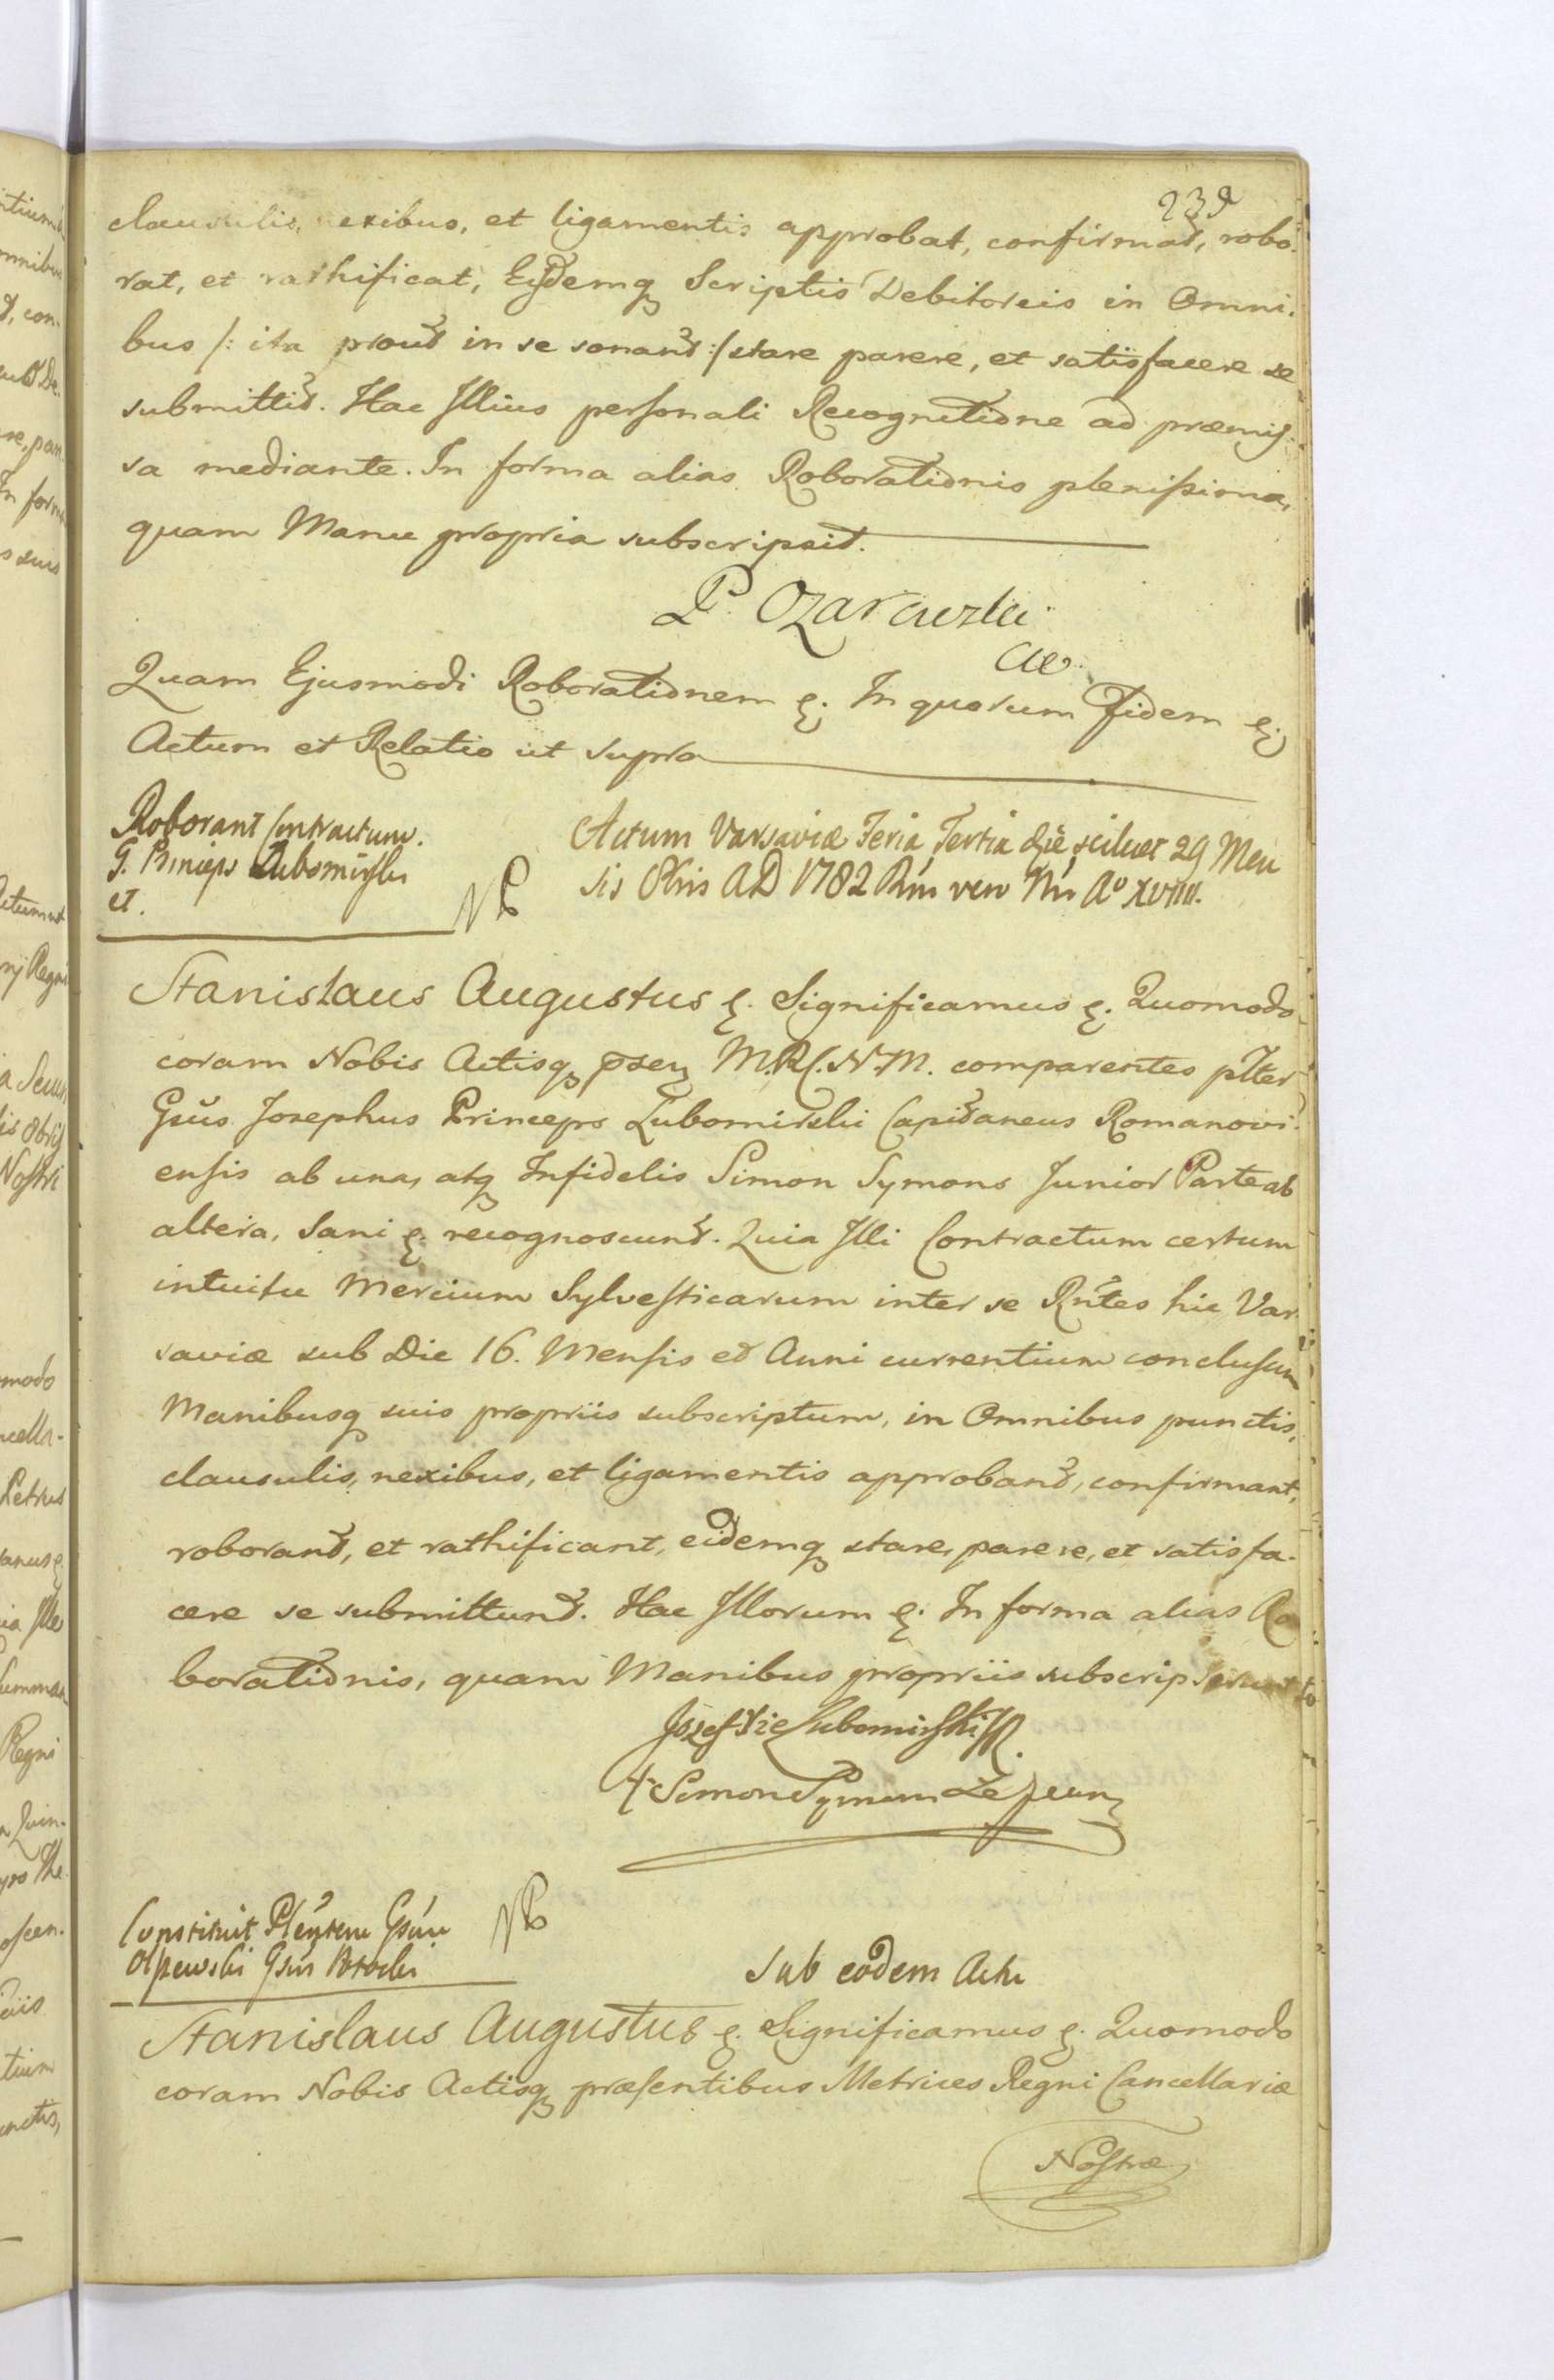 239
clausulis, nexibus, et ligamentis approbat, confirmat, robo-
rat, et rathificat, Eysdemq Scriptis Debitoreis in Omni-
bus /: ita prout in se sonant :/ stare parere, et satisfacere se
submittit. Hac Illius personali Recognitione ad præmis-
sa mediante. In forma alias Roborationis plenissima,
quam Manu propria subscripsit.
P. Ozarowski
Quam Ejusmodi Roborationem &. In quorum Fidem &.
Actum et Relatio ut supra
Roborant Contractum.
G. Princeps Lubomirski
et.
Actum Varsaviæ Feria Tertia die scilicet 29 Men
sis 8bris AD 1782 Rni vero Nri Aº XVIIII.
Stanislaus Augustus &. Significamus &. Quomodo
coram Nobis Actisq M.R.C.N.M. comparentes plter
Gsus Josephus Princeps Lubomirski Capitaneus Romanovi-
ensis ab una, atq Infidelis Simon Symons Junior Parte ab
altera, Sani &. recognoscunt. Quia Illi Contractum certum
intuitu Mercium Sylvesticarum inter se Rntes hic Var-
saviæ sub Die 16. Mensis et Anni currentium conclusum
Manibusq suis propriis subscriptum, in Omnibus punctis,
clausulis, nexibus, et ligamentis approbant, confirmant,
roborant, et rathificant, eidemq stare, parere, et satisfa-
cere se submittunt. Hac Illorum &. In forma alias Ro
borationis, quam Manibus propriis subscripserunt
Jozef Lubomirski
Simon Symon
Constituit Plentem Gsum
Gsus Potocki
Sub eodem Actu
Stanislaus Augustus &. Significamus &. Quomodo
coram Nobis Actisq præsentibus Metrices Regni Cancellariæ
Nostræ